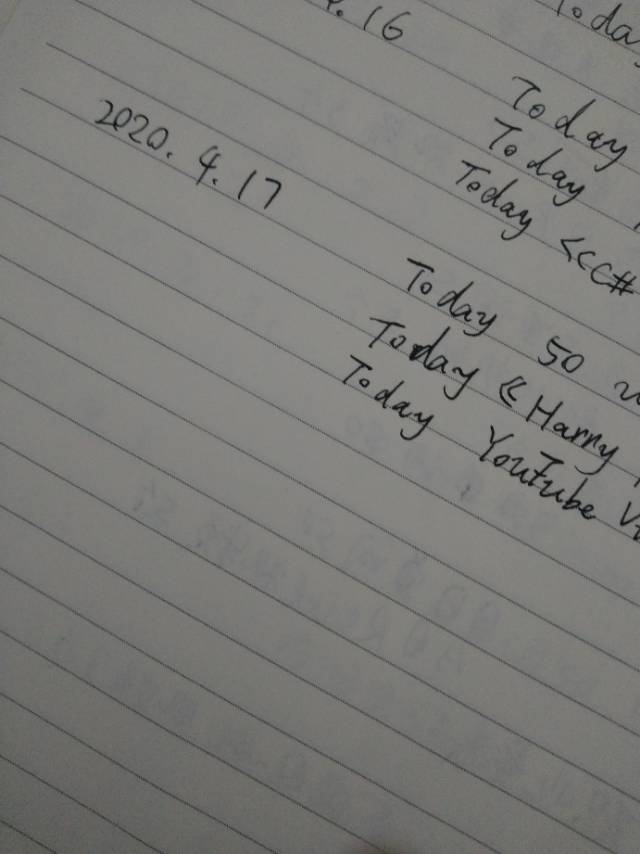 Today
4.16
Today
Today
Today <<C#
2020.4.17
Today 50
Today 《Harry
Today YouTube